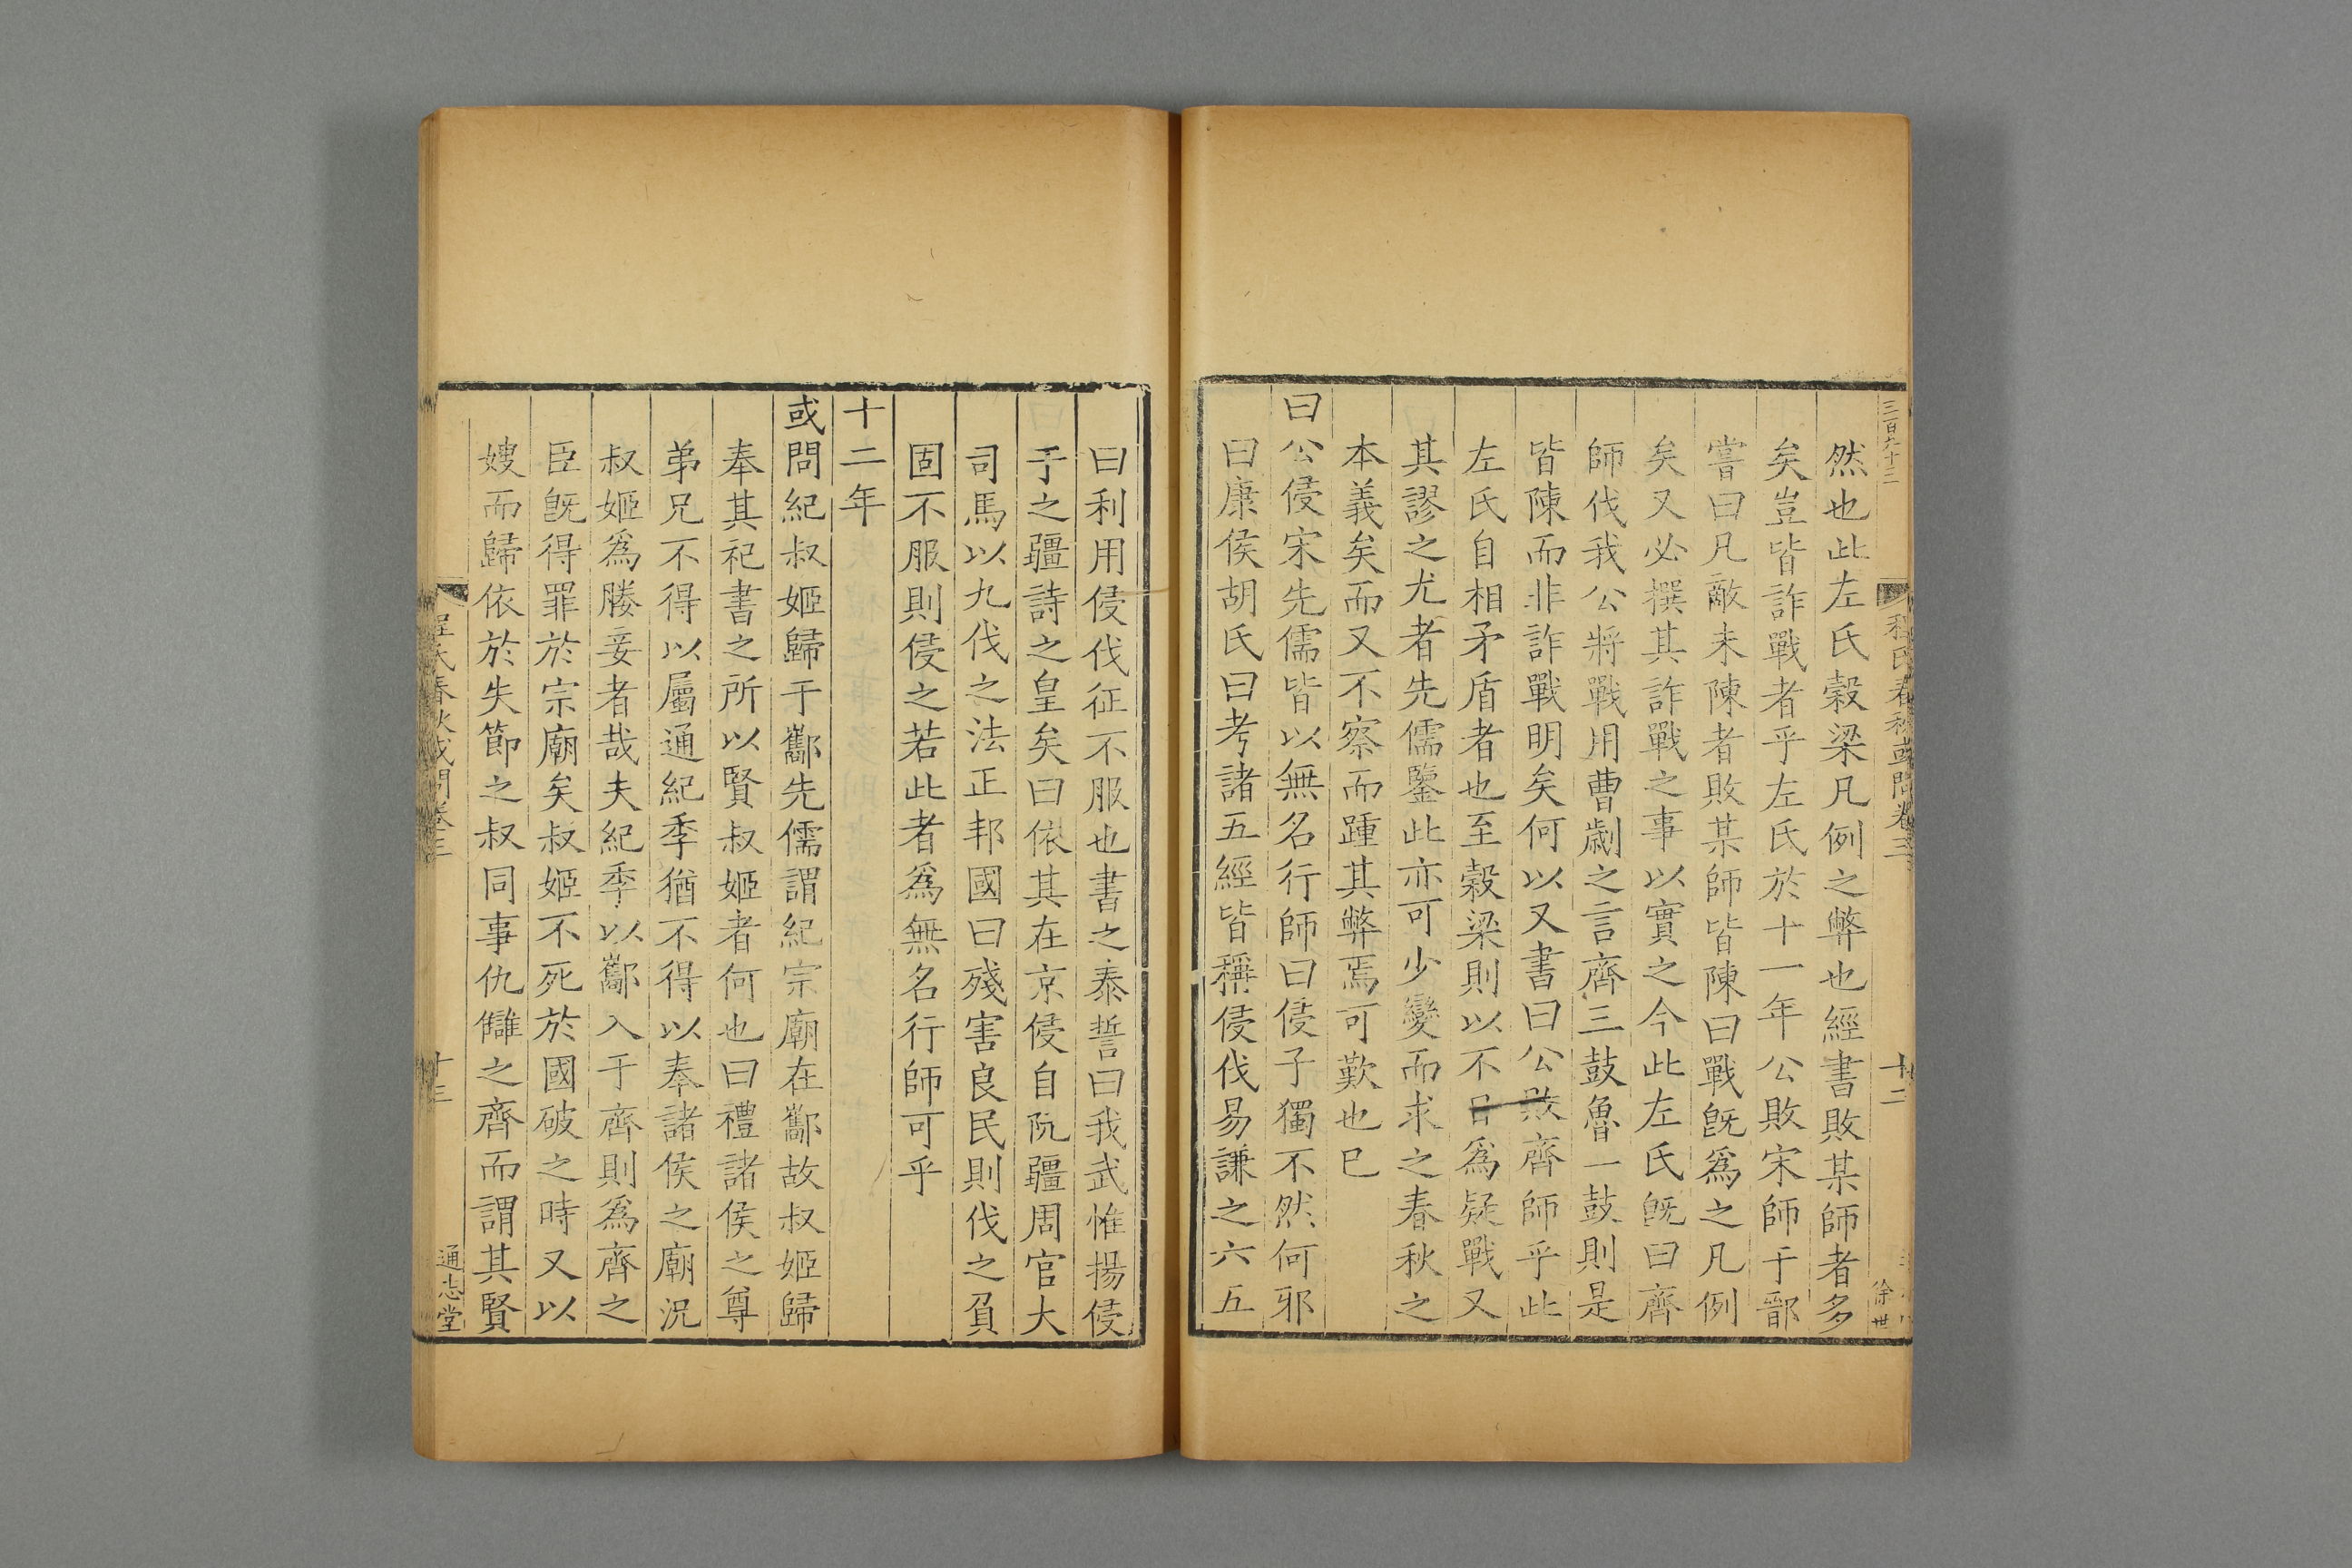 三百九十三
程氏春秋或問卷三
十二
徐世
然也此左氏穀梁凡例之弊也經書敗某師者多
矣豈皆詐戰者乎左氏於十一年公敗宋師于鄑
嘗曰凡敵未陳者敗某師皆陳曰戰旣爲之凡例
矣又必撰其詐戰之事以實之今此左氏旣曰齊
師伐我公將戰用曹劌之言齊三鼓魯一鼓則是
皆陳而非詐戰明矣何以又書曰公敗齊師乎此
左氏自相矛盾者也至穀梁則以不日爲疑戰又
其謬之尤者先儒鑒此亦可少變而求之春秋之
本義矣而又不察而踵其弊焉可歎也已
曰公侵宋先儒皆以無名行師曰侵子獨不然何邪
曰康侯胡氏曰考諸五經皆稱侵伐易謙之六五
曰利用侵伐征不服也書之泰誓曰我武惟揚侵
于之疆詩之皇矣曰依其在京侵自阮疆周官大
司馬以九伐之法正邦國曰殘害良民則伐之負
固不服則侵之若此者爲無名行師可乎
十二年
或問紀叔姬歸于酅先儒謂紀宗廟在酅故叔姬歸
奉其祀書之所以賢叔姬者何也曰禮諸侯之尊
弟兄不得以屬通紀季猶不得以奉諸侯之廟況
叔姬爲媵妾者哉夫紀季以酅入于齊則爲齊之
臣旣得罪於宗廟矣叔姬不死於國破之時又以
嫂而歸依於失節之叔同事仇讎之齊而謂其賢
程氏春秋或問卷三
十三
通志堂